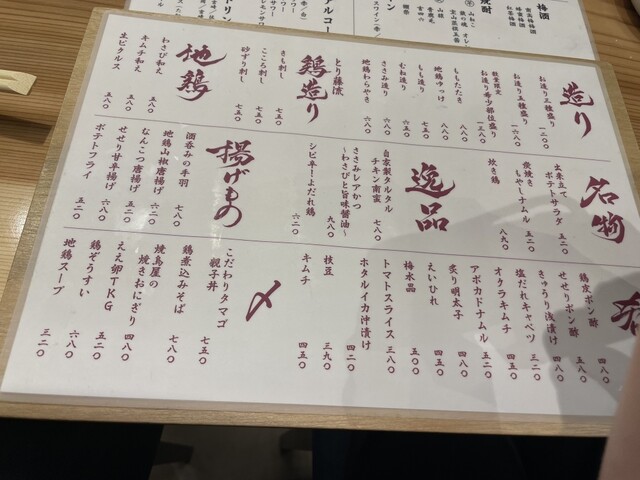 造り
お造り三種盛り 一二〇〇
お造り五種盛り
数量限定
お造り希少部位盛り 一三八〇
ももたたき 八八〇
地鶏ゆっけ 八八〇
もも造り 七五〇
むね造り 六五〇
ささみ造り 六八〇
地鶏わらやき 六八〇
とり藤流
鶏造り
きも刺し 七五〇
こころ刺し 七五〇
砂ずり刺し 七五〇
地鶏
わさび和え 五八〇
キムチ和え 五八〇
生ピクルス 五八〇
名物
出来立て
ポテトサラダ 五二〇
炭焼き
もやしナムル 五二〇
炊き鶏 八九〇
逸品
自家製タルタル
チキン南蛮 七八〇
ささみレアかつ
〜わさびと旨味醤油〜 九八〇
シビ辛!よだれ鶏 六二〇
揚げもの
酒呑みの手羽 七八〇
地鶏山椒唐揚げ
なんこつ唐揚げ 五二〇
せせり甘辛揚げ 六八〇
ポテトフライ 五二〇
鶏皮ポン酢 四八〇
せせりポン酢 五八〇
きゅうり浅漬け 四八〇
塩だれキャベツ 三二〇
オクラキムチ 四八〇
アボカドナムル 五二〇
炙り明太子 四八〇
えいひれ 五四〇
梅水晶 四五〇
トマトスライス 三八〇
ホタルイカ沖漬け 四二〇
枝豆 三九〇
キムチ 四五〇
〆
こだわりタマゴ
親子丼 七五〇
鶏煮込みそば 七八〇
焼鳥屋の
焼きおにぎり 四八〇
ええ卵TKG 五二〇
鶏ぞうすい 六八〇
地鶏スープ 三二〇
梅酒
焼酎